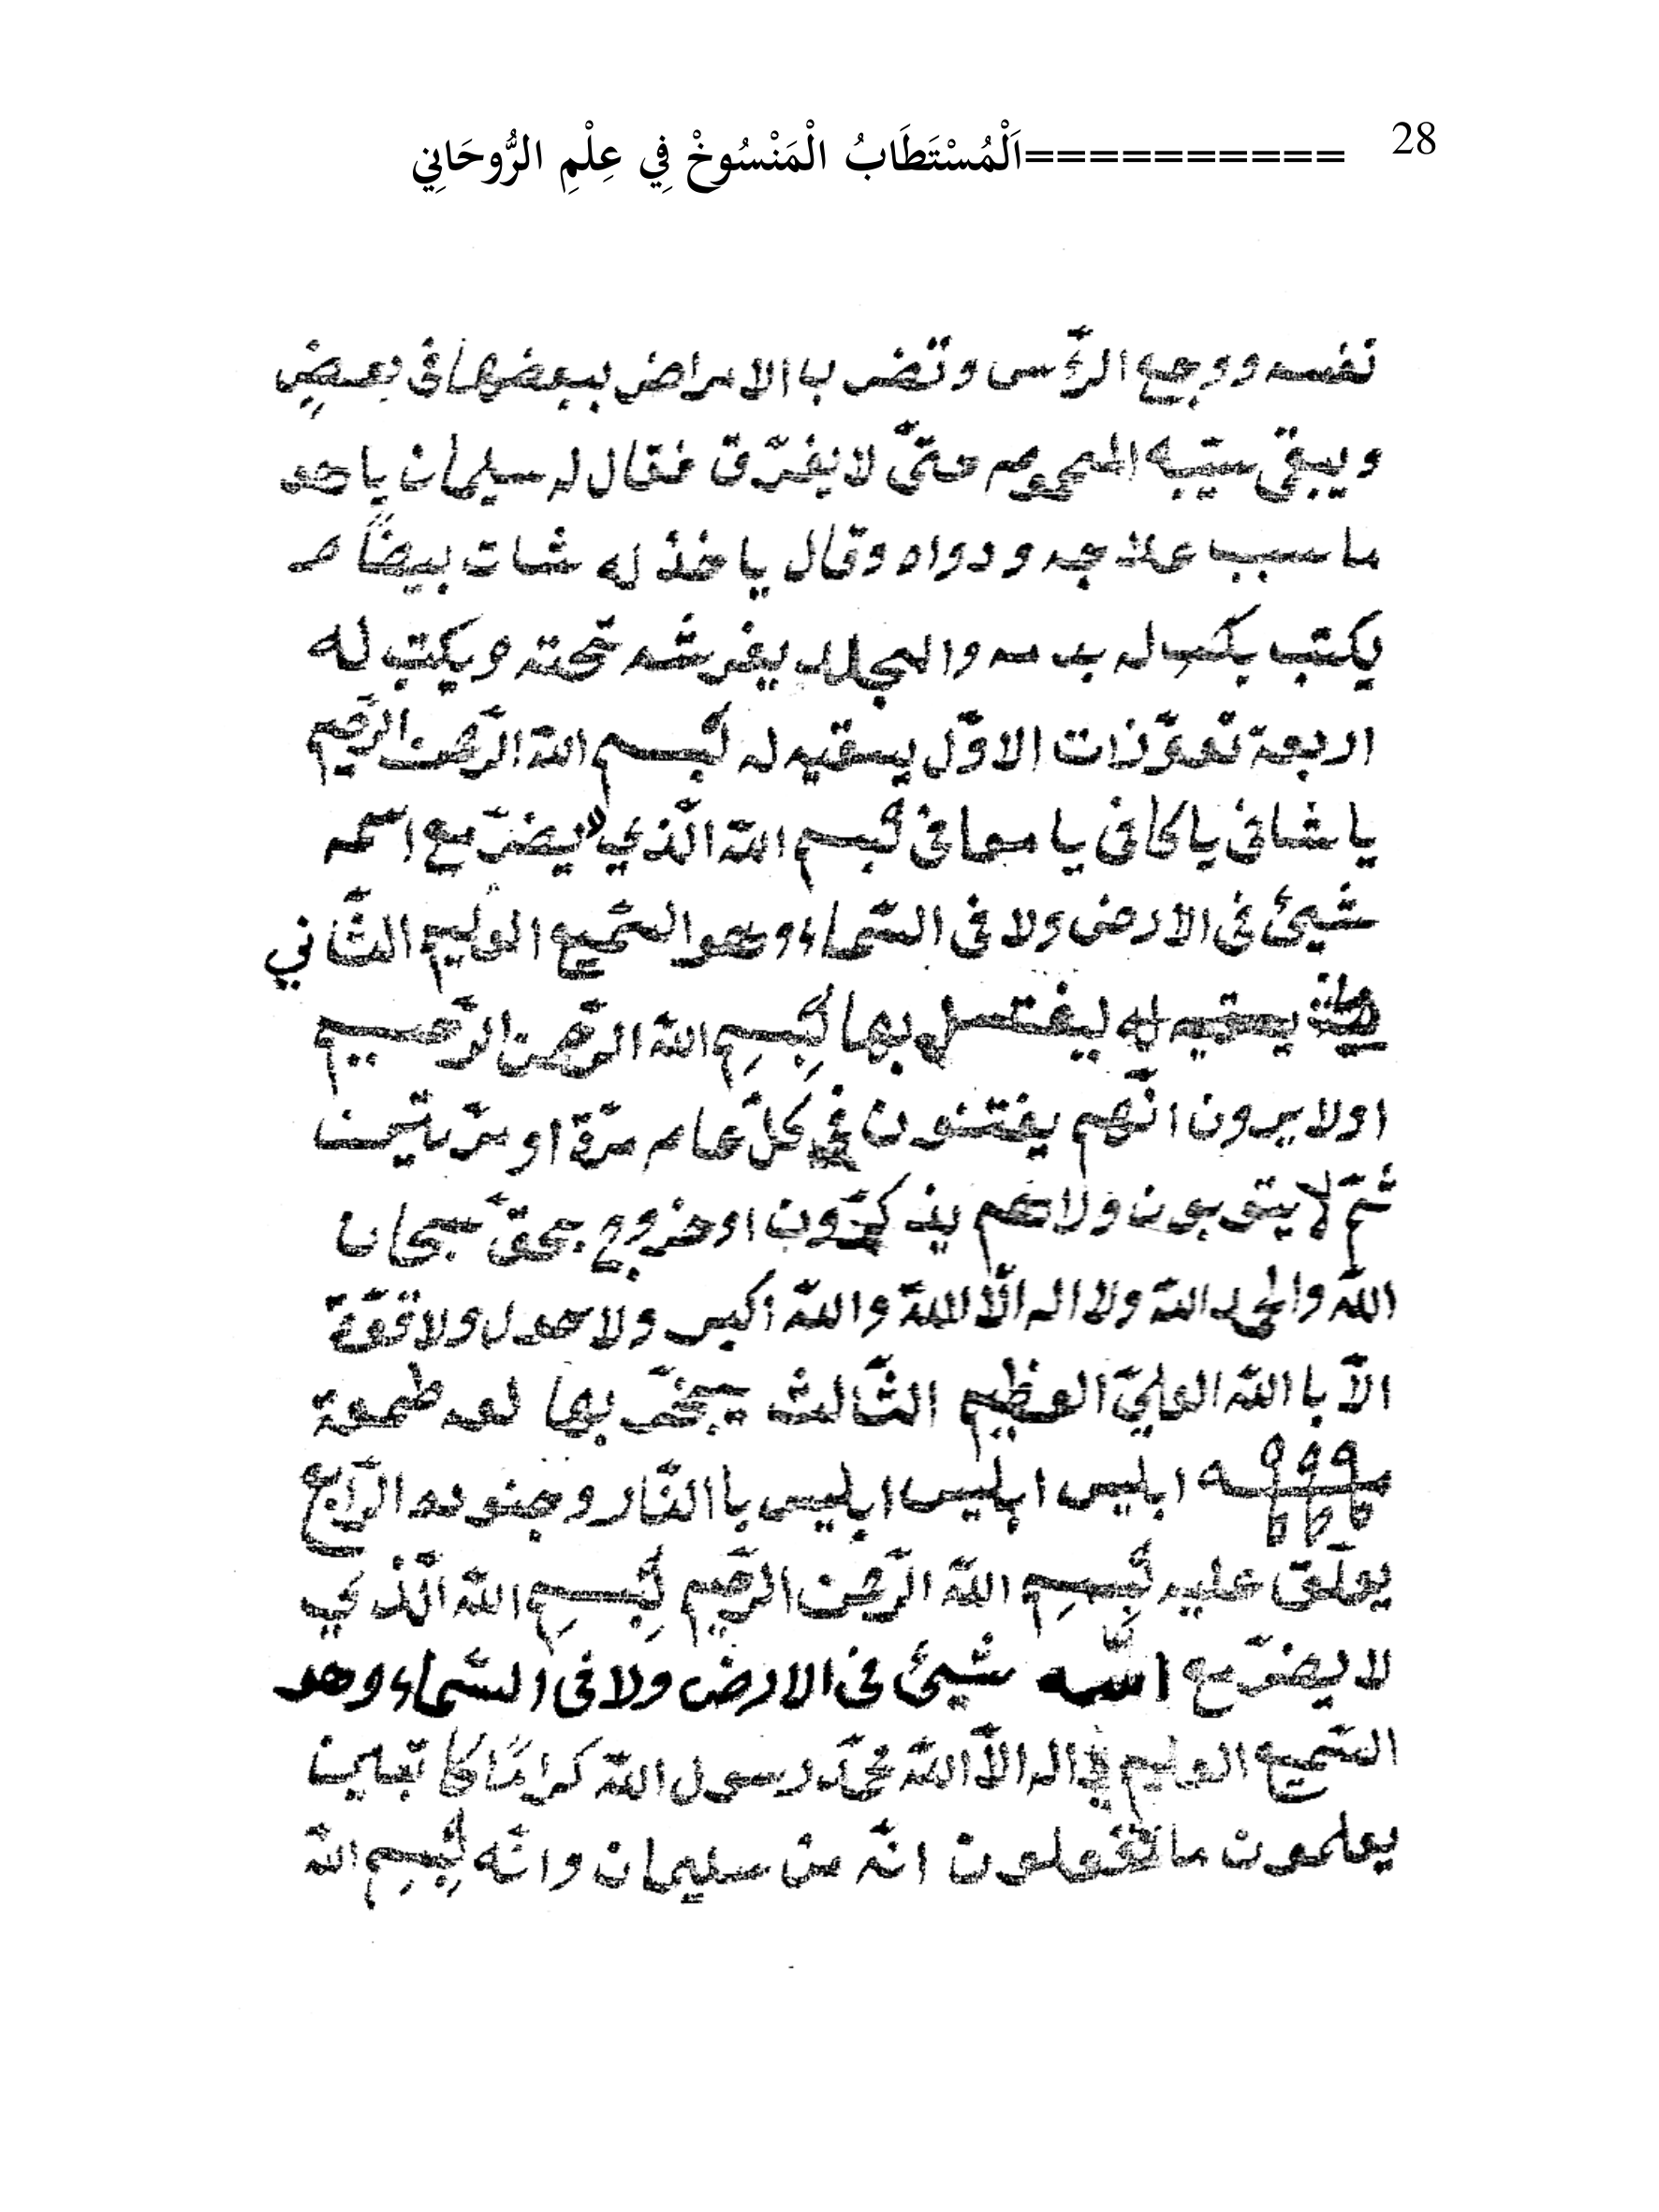 28 ==========اَلْمُسْتَطَابُ الْمَنْسُوخْ فِي عِلْمِ الرُّوحَانِي
نفسه ووجع الرّٔس وتضرب با الامراض ببعضها فى بعضٍ
ويبقى شبه المحموم حتىّ لا يفرّق فقال له سليمان يا هو
ما سبب علاجه ودواه وقال ياخذ له شات بيضاً
يكتب له بدمه والجلد يفرشه تحته ويكتب له
اربعة تعوّذات الاوّل يسقيه له بسم اللّه الرّحمن الرّحيم
يا شافى يا كافى يا معافى بسم اللّه الّذي لا يضرّ مع اسمه
شيئ فى الارض ولا فى السّماء وهو السّميع العليم الثّاني
يسقيه له ليغتسل بها بِسمِ اللّه الرّحمن الرّحيم
اولا يرون انّهم يفتنون في كلّ عام مرّة او مرّتين
ثمّ لا يتوبون ولاهم يذكرّون اوخروج بحقّ سبحان
اللّه والحمد اللّه ولا اله الاّ اللّه واللّه اكبر ولا حول ولا قوّة
الاّ با اللّه العليّ العظيم الثّالث يبخّر بها لعه طمعة
ابليس ابليس ابليس با النّار وجنوده الرّابع
يعلّق عليه بِسمِ اللّه الرّحمن الرّحيم بِسمِ اللّه الّذي
لا يضرّ مع اسمه شيئ فى الارض ولا فى السّماء وهو
السّميع العليم لا اله الاّ اللّه محمّد رسول اللّه كرامًا كاتبين
يعلمون ما تفعلون انّه من سليمان وانّه بِسمِ اللّه